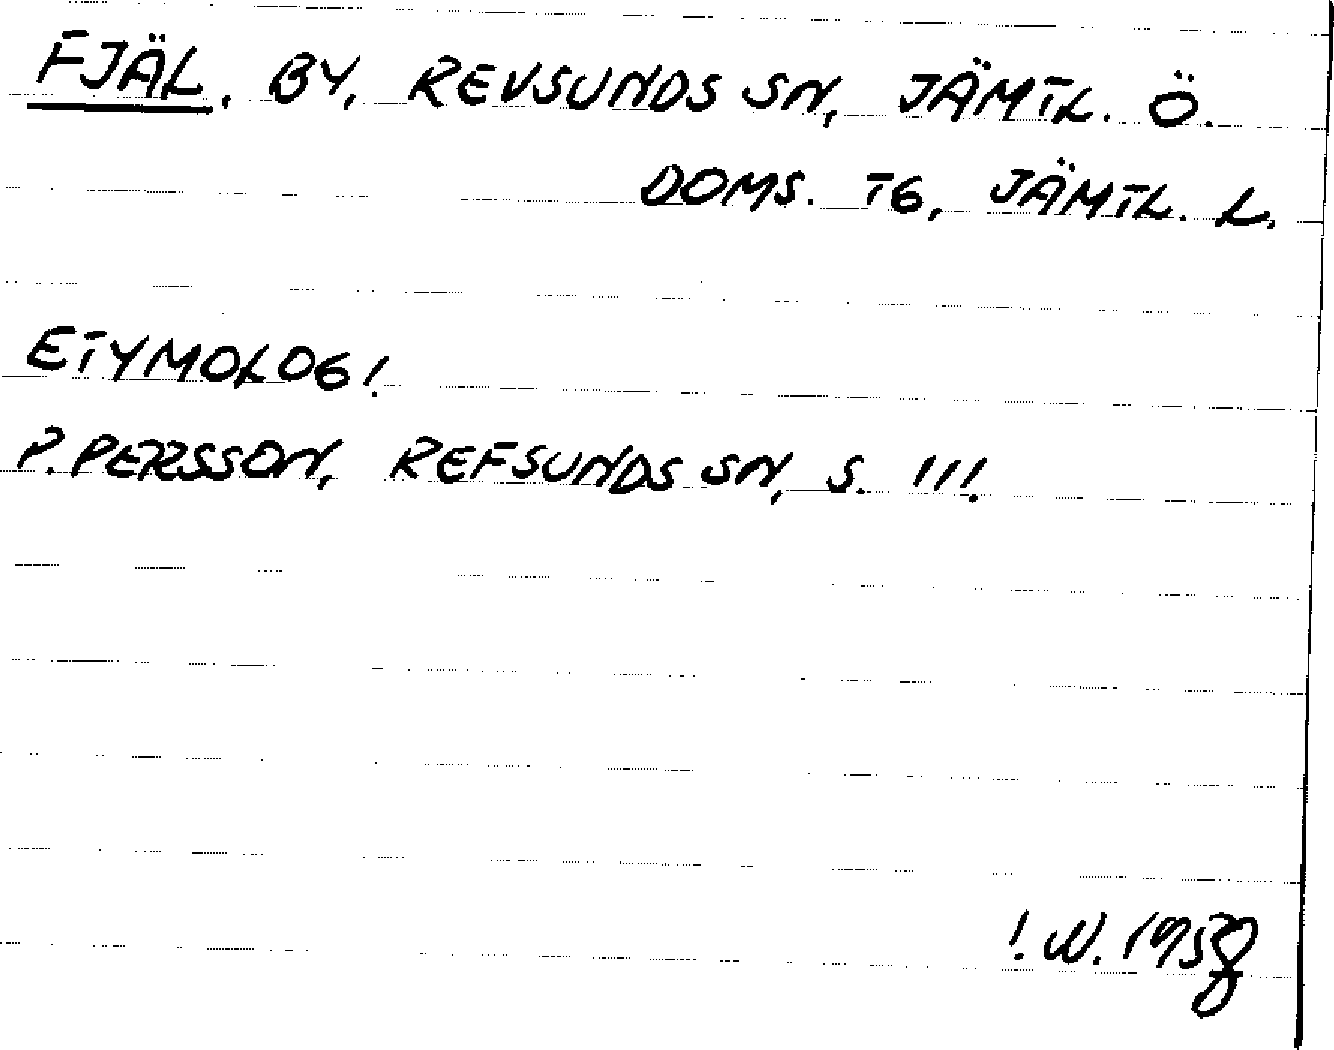 FJÄL, BY, REVSUNDS SN, JÄMTL. Ö.
DOMS. TG, JÄMTL. L.
ETYMOLOG!
P. PERSSON, REFSUNDS SN, S. 111.